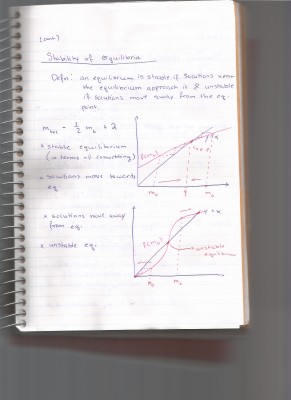 (cont)
Stability of Equilibria
Defn: an equilibrium is stable if solutions near
the equilibrium approach it & unstable
if solutions move away from the eq.
point.
m_{t+1} = 1/2 m_t + 2
* stable equilibrium
(in terms of cobwebbing)
* solutions move towards
eq.
y=x
f(m_t)
m_0
m_0
* solutions move away
from eq.
* unstable eq.
y=x
f(m_t)
unstable
equilibrium
m_0
m_0